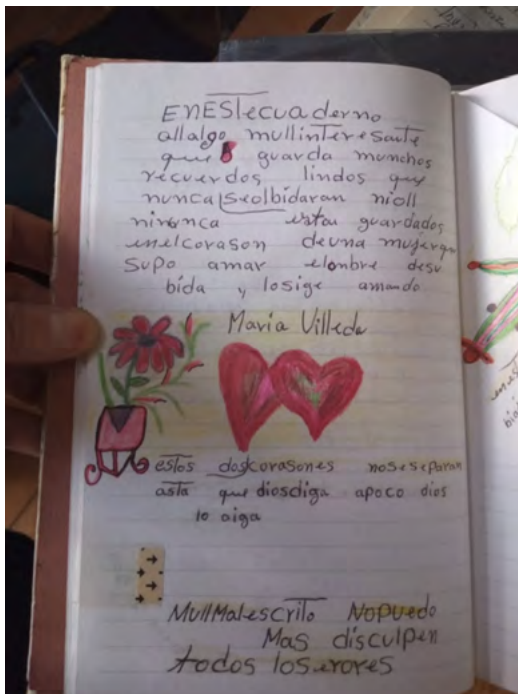 ENESTecuaderno
allalgo mullinteresante
que guarda munchos
recuerdos lindos que
nunca seolbidaran nioll
ninunca estan guardados
enelcorason deuna mujerqu
supo amar elonbre desu
bida y losige amando
Maria Villeda
estos doskcorasones noseseparan
asta que diosdiga apoco dios
lo aiga
MullMalescrito Nopuedo
Mas disculpen
todos loserores